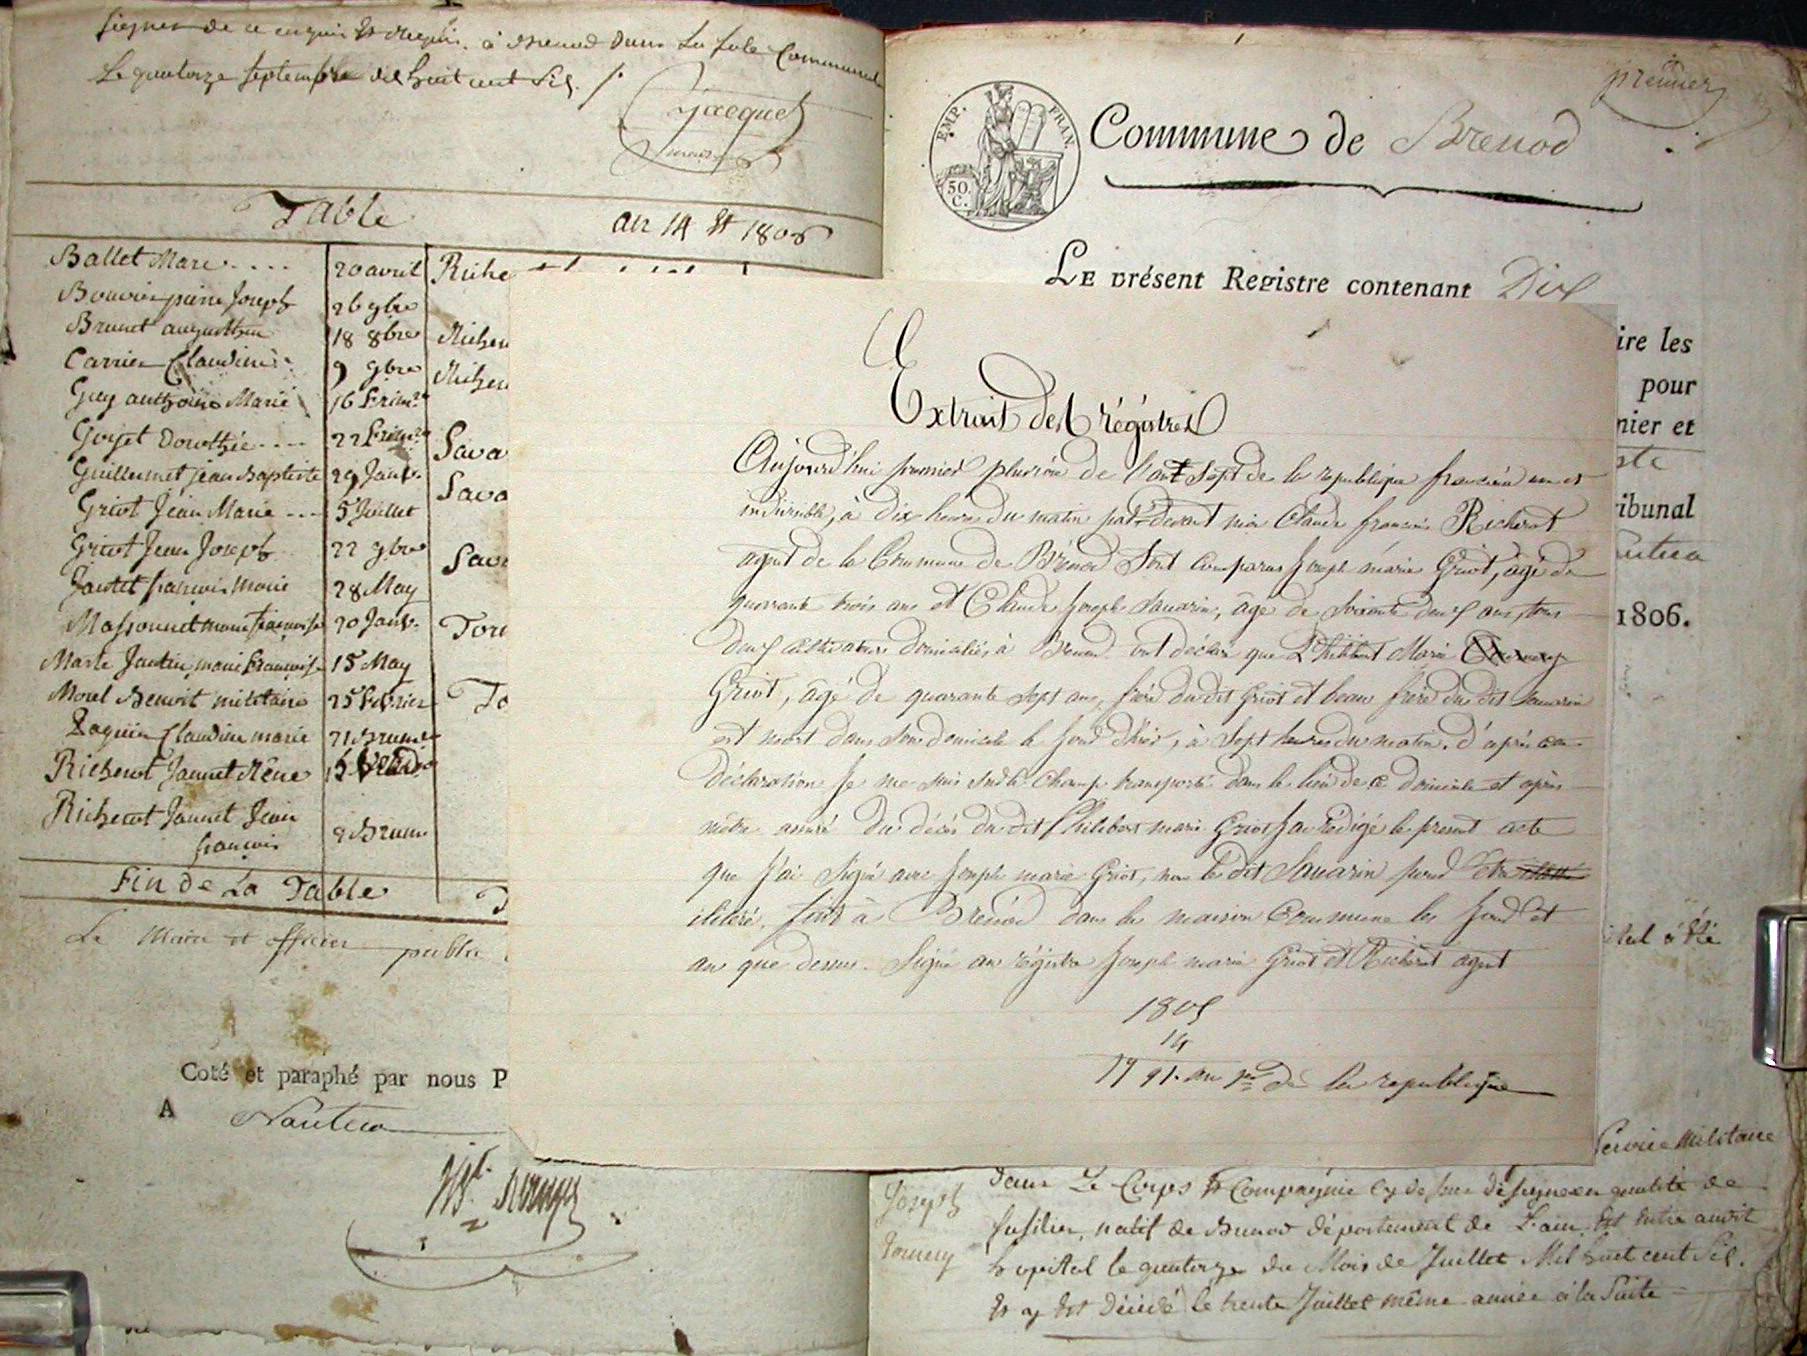 signer de ce enquis et requis. à Brenod dans La sale Communale
Le quatorze septembre mil huit cent six
Jacquet
Table an 14 et 1806
Ballet Marc .... 20 avril Riche
Bouvier pierre Joseph 26 9bre
Brunet augustin 18 8bre Richer
Carrier Claudine 9 9bre Richer
Guy anthoine Marie 16 frim.re
Goyet Dorothée .... 22 frim.re Sava
Guillermet jean Baptiste 29 Janv. Sava
Griot Jean Marie ... 5 Juillet
Griot Jean Joseph 22 9bre Sava
Jantet françois marie 28 May
Massonnet marie françoise 20 Janv. Torn
Marie Jantin marie françoise 15 May
Morel Benoit militaire 25 février To
Paquier Claudine marie 21 Brum.e
Richerot Jannet Réne 15
Richerot Jannet Jean
françois 2 Brum
Fin de La Table
Le Maire et officier public
Coté et paraphé par nous P
A Nantua
premier
EMP. FRAN.
50. C.
Commune de Brenod
LE présent Registre contenant Dix
ire les
pour
nier et
ste
ribunal
antua
1806.
Extrait des régistres
Aujourd'hui premier pluviôse de l'an sept de la republique française une et
indivisible, à dix heures du matin par-devant moi Claude françois Richerot
agent de la Commune de Brénod Sont comparus Joseph marie Griot, âgé de
quarante trois ans et Claude Joseph Savarin, âgé de soixante deux ans, tous
deux cultivateurs domiciliés à Brenod ont déclaré que Philibert Marie
Griot, âgé de quarante sept ans, frère du dit Griot et beau frère du dit Savarin
est mort dans son domicile le jour d'hier, à sept heures du matin. d'après cette
déclaration Je me suis sur le champ transporté dans le lieu de ce domicile et après
m'être assuré du décès du dit Philibert marie Griot J'ai rédigé le present acte
que j'ai signé avec Joseph marie Griot, non le dit Savarin pour être
illitéré, fait à Brénod dans la maison Commune les jour et
an que dessus. Signé au régistre Joseph marie Griot et Richerot agent
1805
14
1791. an 1er de la republique
service militaire
Joseph dans Le Corps et Compagnie cy dessus désigné en qualité de
Tournery fusilier, natif de Brenod département de L'ain, Est entré audit
hopital le quatorze du Mois de Juillet Mil huit cent six.
Et y Est Décédé le trente Juillet même année à la suite